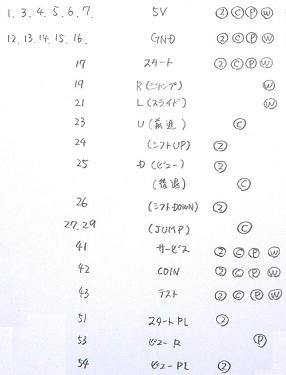 1. 3. 4. 5. 6. 7. 5V ② Ⓒ Ⓟ Ⓦ
12. 13. 14. 15. 16. GND ② Ⓒ Ⓟ Ⓦ
17 スタート ② Ⓒ Ⓟ Ⓦ
19 R (ジャンプ) Ⓦ
21 L (スライド) Ⓦ
23 U (前進) Ⓒ
24 (シフトUP) ②
25 D (ビュー) ②
(後退) Ⓒ
26 (シフトDOWN) ②
27. 29 (JUMP) Ⓒ
41 サービス ② Ⓒ Ⓟ Ⓦ
42 COIN ② Ⓒ Ⓟ Ⓦ
43 テスト ② Ⓒ Ⓟ Ⓦ
51 スタート PL ②
53 ビュー R Ⓟ
54 ビュー PL ②